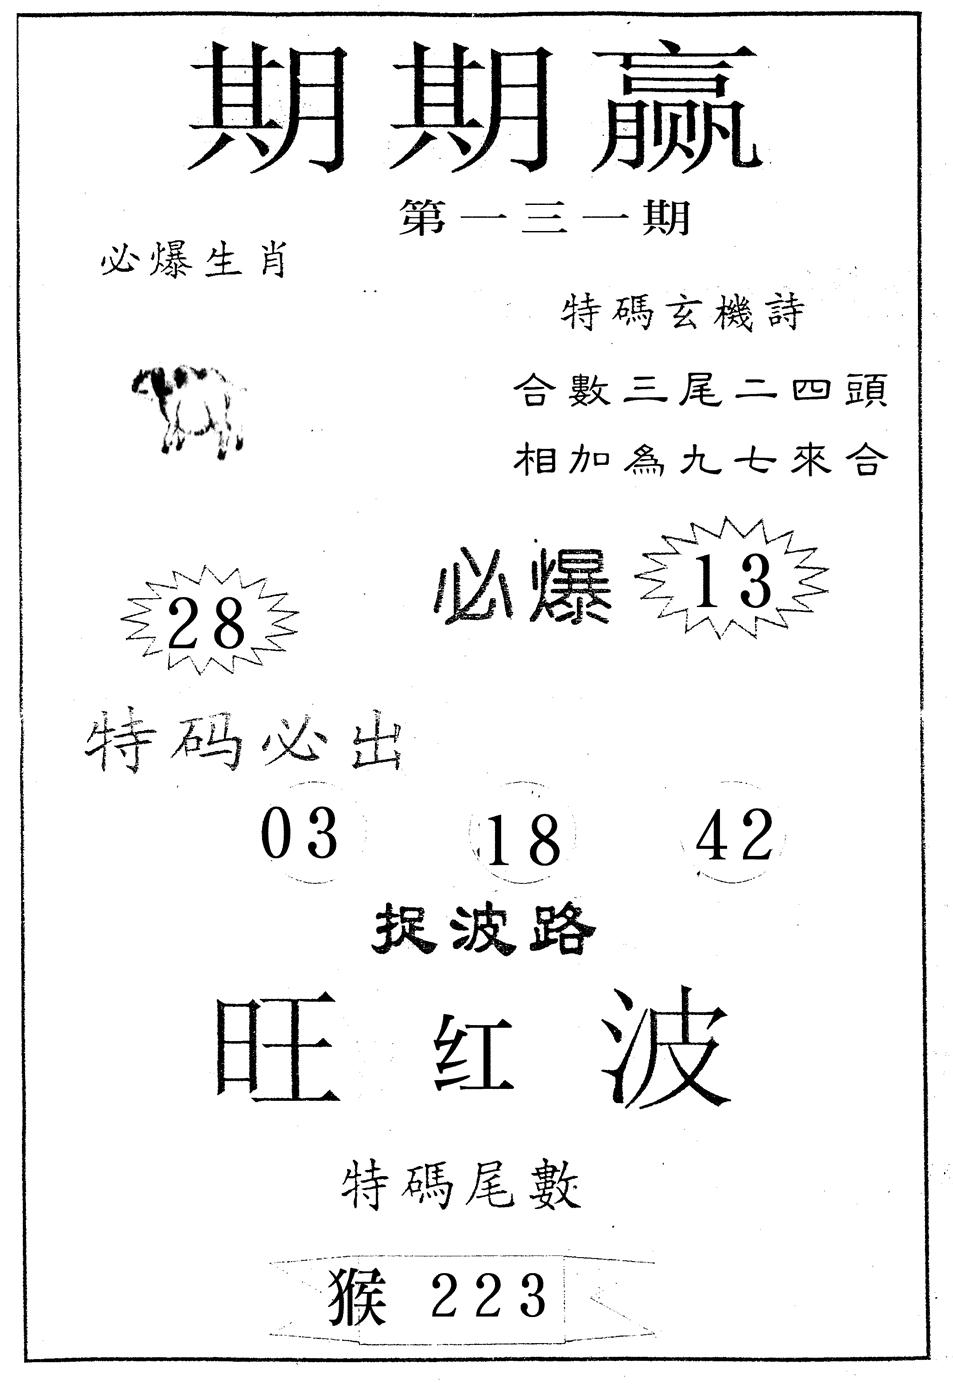 期期赢
第一三一期
必爆生肖
特碼玄機詩
合數三尾二四頭
相加為九七來合
必爆 13
28
特码必出
03 18 42
捉波路
旺红波
特碼尾數
猴 223